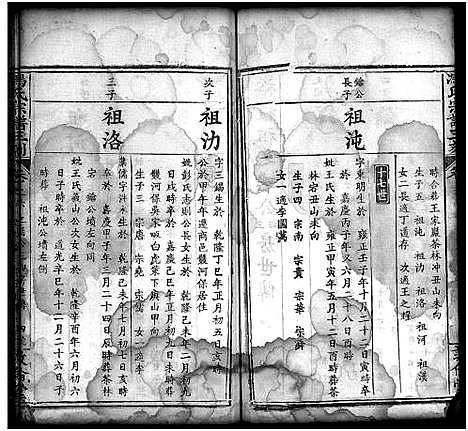 時合葬王家嚴茶林冲丑山未向
生子五 祖沌 祖沕 祖洛 祖河 祖漢
女二長適丁道存 次適丁之程
十七世
綸公
長子
祖沌
字東明生於 雍正壬子年十月二十二日寅時卒
於 嘉慶丙子年又六月二十八日酉時
妣王氏生於 雍正甲寅年五月十二日酉時葬茶
林宕丑山未向
生子四 宗南 宗貴 宗華
女一適李國萬
次子
祖沕
字三錫生於 乾隆丁巳年正月初五日亥時
公於甲午年遷商邑雙河保居住
妣彭氏志則公長女生於 乾隆己未年二月初九
日戌時卒於 嘉慶己巳年正月初九日未時葬
雙河保吳家嘅白虎業下寅山甲向
生子三 宗唐 宗堯 女一適李
三子
祖洛
業儒字 生於 乾隆己未年七月初七日亥時
卒於 嘉慶甲子年三月二十四日辰時葬茶林
宕 綸公墳左向同
妣王氏義山公次女生於 乾隆辛酉年六月初六
日子時卒於 道光辛巳年十二月二十六日子
時葬 祖沌公墳左側